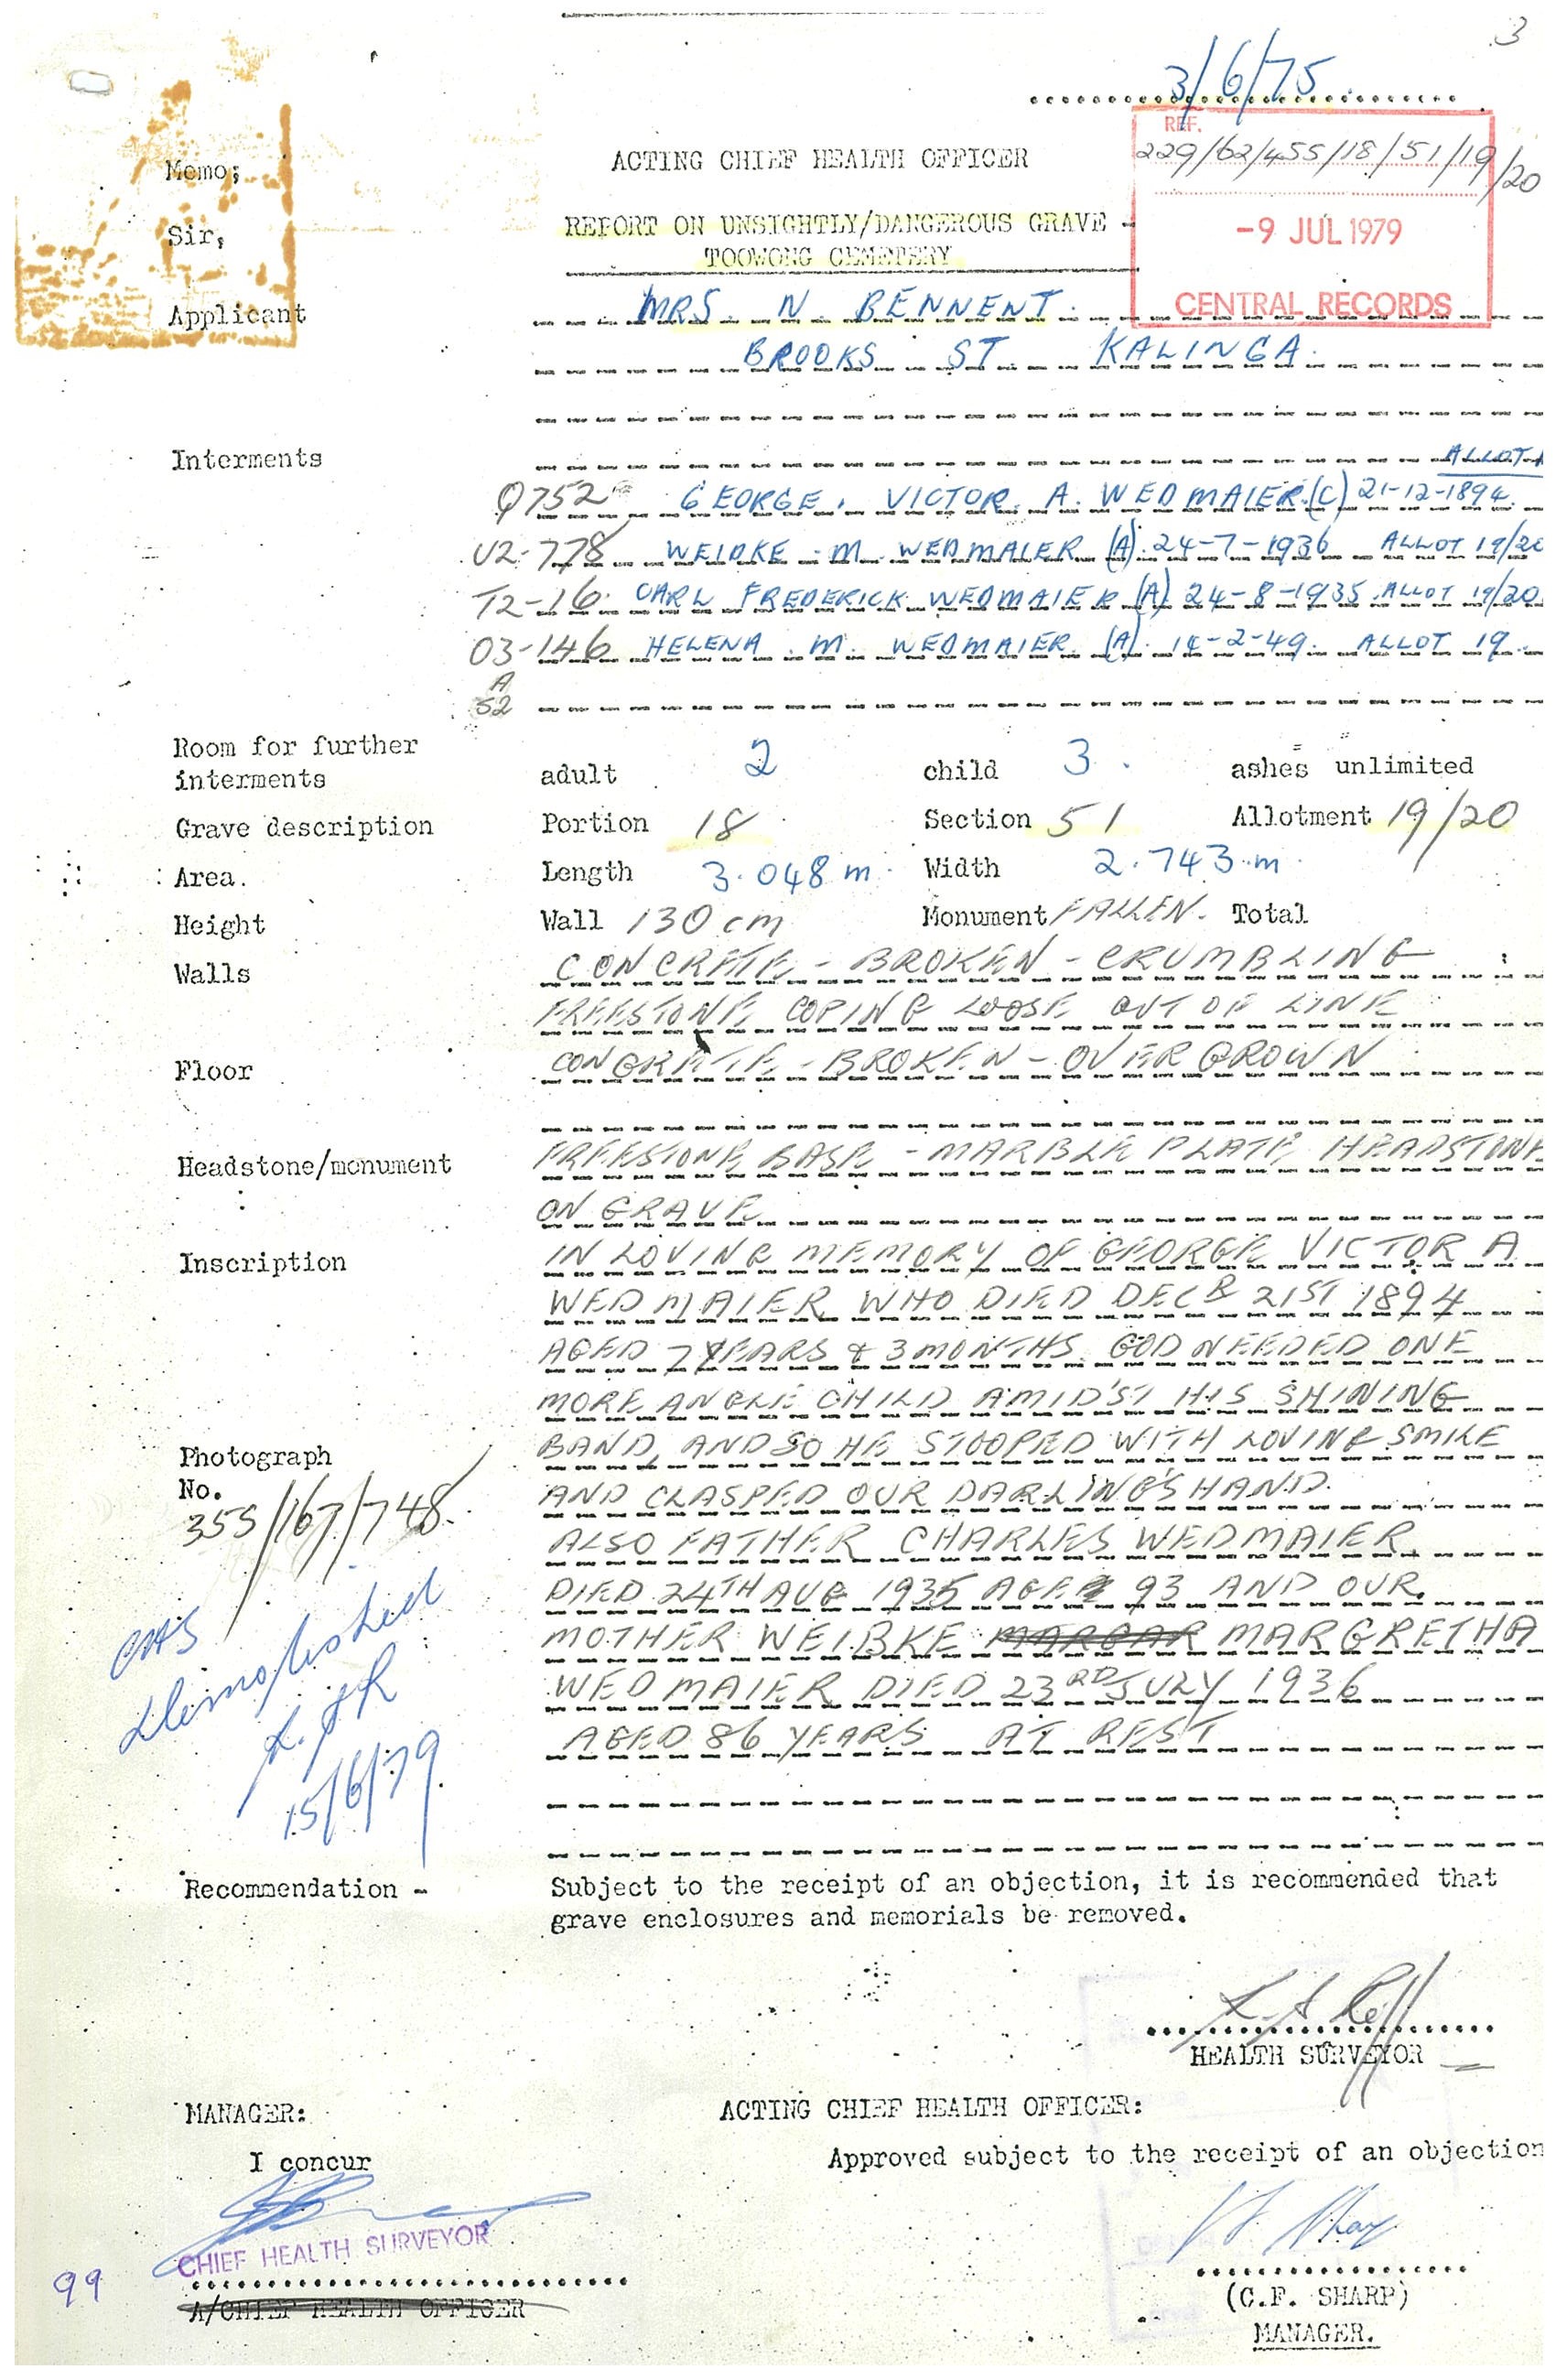 3
3/6/75
REF.
229/62/455/18/51/19/20
-9 JUL 1979
CENTRAL RECORDS
Memo;
ACTING CHIEF HEALTH OFFICER
Sir,
REPORT ON UNSIGHTLY/DANGEROUS GRAVE -
TOOWONG CEMETERY
Applicant MRS. N BENNENT.
BROOKS ST. KALINGA.
Interments
ALLOT
Q752 GEORGE. VICTOR. A. WEDMAIER.(C) 21-12-1894.
U2-778 WEIDKE. M. WEDMAIER (A). 24-7-1936 ALLOT 19/20
T2-16. CARL FREDERICK. WEDMAIER (A) 24-8-1935. ALLOT 19/20
03-146 HELENA. M. WEDMAIER. (A). 14-2-49. ALLOT 19.
A
52
Room for further
interments adult 2 child 3. ashes unlimited
Grave description Portion 18 Section 51 Allotment 19/20
Area. Length 3.048 m. Width 2.743.m.
Height Wall 130 cm Monument FALLEN. Total
Walls CONCRETE - BROKEN - CRUMBLING
FREESTONE COPING LOOSE OUT OF LINE
Floor CONCRETE - BROKEN - OVERGROWN
Headstone/monument FREESTONE BASE - MARBLE PLATE HEADSTONE
ON GRAVE
Inscription IN LOVING MEMORY OF GEORGE VICTOR A
WEDMAIER WHO DIED DECB 21ST 1894
AGED 7 YEARS & 3 MONTHS. GOD NEEDED ONE
MORE ANGLE CHILD AMID'ST HIS SHINING
BAND, AND SO HE STOOPED WITH LOVING SMILE
AND CLASPED OUR DARLING'S HAND.
ALSO FATHER CHARLES WEDMAIER
DIED 24TH AUG 1935 AGED 93 AND OUR
MOTHER WEIBKE MARGAR MARGRETHA
WEDMAIER DIED 23RD JULY 1936
AGED 86 YEARS AT REST
Photograph
No.
355/167/748.
Demolished
15/6/79
Recommendation - Subject to the receipt of an objection, it is recommended that
grave enclosures and memorials be removed.
HEALTH SURVEYOR
MANAGER:
ACTING CHIEF HEALTH OFFICER:
I concur
Approved subject to the receipt of an objection
CHIEF HEALTH SURVEYOR
A/CHIEF HEALTH OFFICER
99
(C.F. SHARP)
MANAGER.